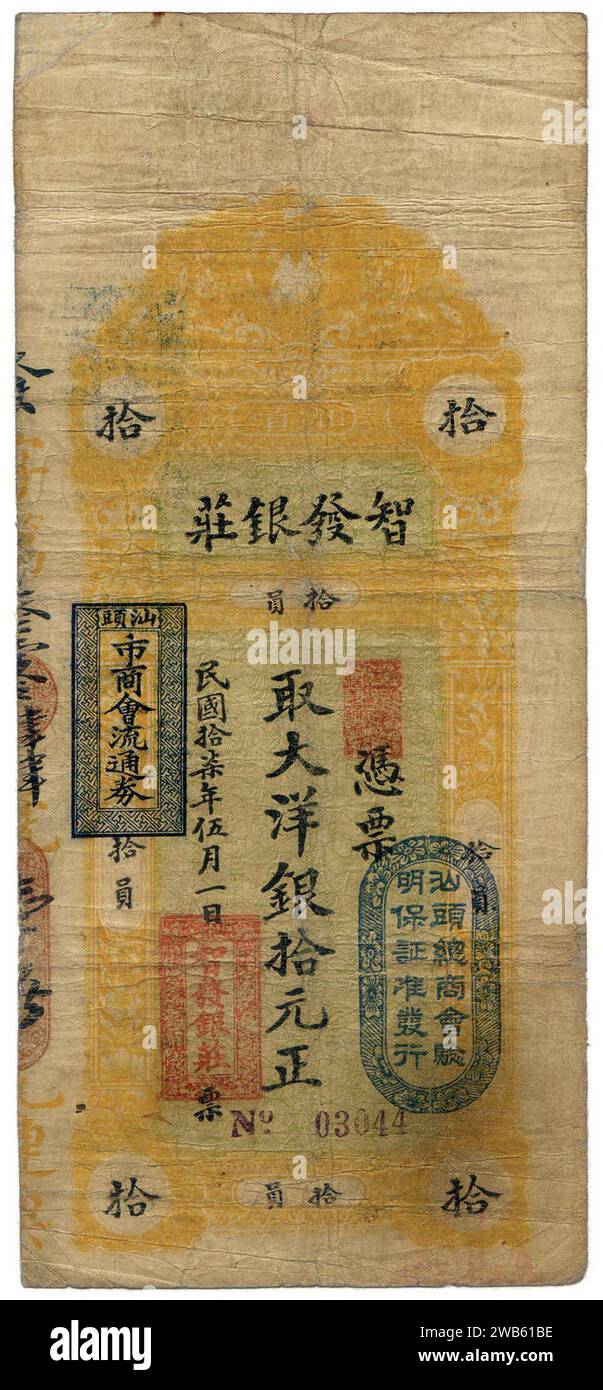 拾
拾
智發銀莊
拾員
憑票
取大洋銀拾元正
民國拾柒年伍月一日
智發銀莊
票
汕頭
市商會流通券
拾員
拾員
汕頭總商會驗
明保証准發行
No 03044
拾
拾員
拾
alamy
alamy
Image ID: 2WB61BE
www.alamy.com